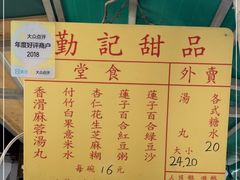 大众点评
年度好评商户
2018
大众点评
勤記甜品
堂食
外賣
香滑麻蓉湯丸
付竹白果意米水
杏仁花生芝麻糊
蓮子百合紅豆粥
蓮子百合綠豆沙
每碗16元
湯丸
各式糖水
大小
20
24,20